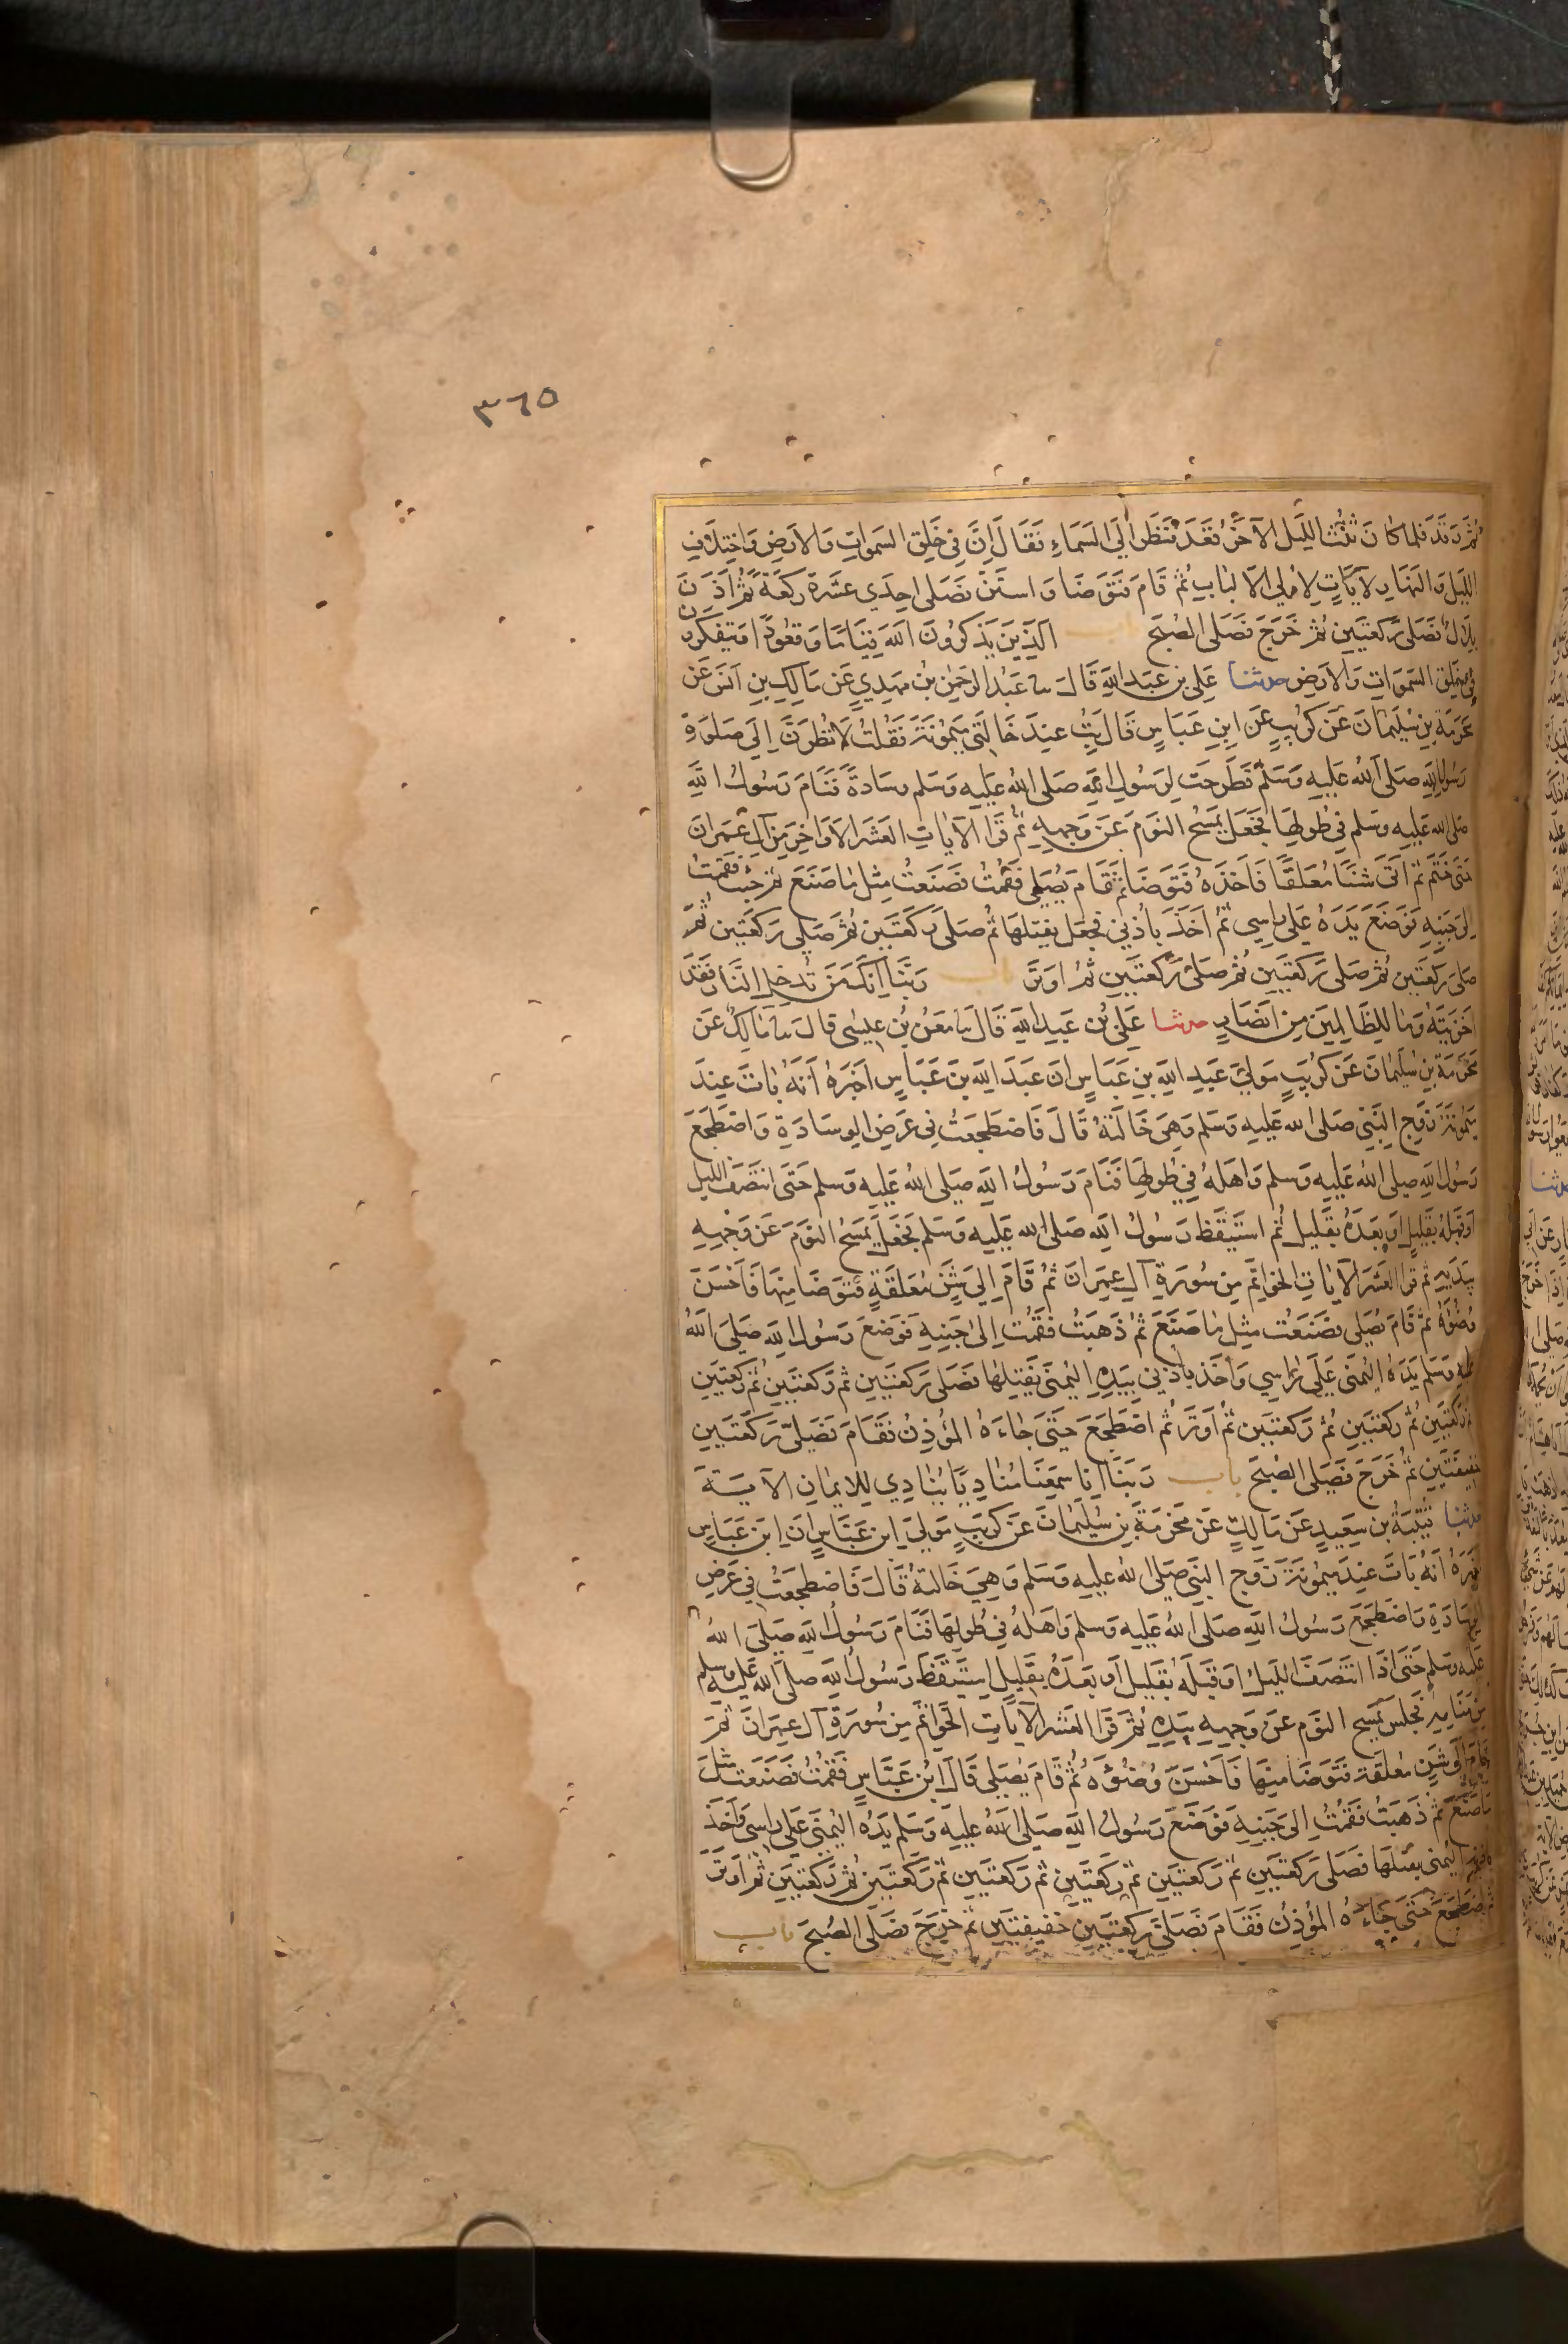 ٣٦٥
ثُمَّ رَقَدَ فلما كَانَ ثُلُثُ اللَّيْلِ الآخَرُ فَقَعَدَ فَنَظَرَ إلَى السَمَاءِ فَقَالَ إنَّ فِي خَلْقِ السموَاتِ وَالأرْضِ وَاخْتِلَافِ
اللَّيْلِ وَالنَهَارِ لآيَاتٍ لأولِي الألبَابِ ثُمَّ قَامَ فَتَوَضَا وَاستَنَّ فصَلى احدَى عشَرةَ ركعَةً ثُمَّ اذَّنَ
بِلَالٌ فصَلَى رَكعتَينِ ثُمَّ خَرَجَ فَصَلى الصُبْحَ الَّذِينَ يَذكُرُونَ اللهَ قِيَامًا وَقعُودًا وَيتفَكرُونَ
فِي خَلْقِ السَموَاتِ وَالأرضِ حدثنا عَلِي بن عَبدِ اللهِ قَالَ سا عَبْدُ الرَحمنِ بنُ مهدِيٍ عَن مَالِكِ بنِ أنَسٍ عَن
مخرَمَةَ بنِ سُلَيمَانَ عَن كرُيبٍ عَنِ ابنِ عَبَاسٍ قَال بِتُّ عِندَ خَالَتِي مَيمُونَةَ فَقُلتُ لَانظُرَنَّ إلَى صَلوةِ
رَسُولِ اللهِ صَلى اللهُ عَلَيهِ وَسَلَّم فَطُرِحَت لِرَسُولِ اللهِ صَلى اللهُ عَليهِ وَسَلم وِسَادةٌ فَنَامَ رَسُولُ اللهِ
صَلى الله عَلَيهِ وَسَلم فِي طُولِهَا فجَعَلَ يَمسَحُ النَومَ عَن وَجهِهِ ثُم قَرَا الآيَاتِ العَشرَ الأوَاخِرَ مِن آلِ عمرَانَ
حَتى خَتَمَ ثُم اتَى شَنًّا مُعلَقًا فَأخَذَهُ فَتَوَضَا ثُمَّ قَامَ يُصَلِى فَقُمتُ فَصَنَعتُ مِثلَ مَا صَنَعَ ثُمَّ جِئتُ فَقمتُ
إلى جَنبِهِ فَوَضَعَ يَدَهُ عَلَى رَاسِى ثُمَّ أخَذَ بأذُنِي فجعَلَ يَفتِلهَا ثُم صَلى رَكعَتَينِ ثُمَّ صَلى رَكعَتَينِ ثُمَّ
صَلى رَكعَتَينِ ثُمَّ صَلى رَكعَتَينِ ثُمَّ صَلى رَكعَتَينِ ثمَّ اوتَرَ رَبَّنَا إنَّكَ مَن تُدخِلِ النَّارَ فَقَدْ
اخزَيتَهُ وَمَا لِلظَّالِمِينَ مِن انصَارٍ حدثنا عَلِيُّ بنُ عَبدِ اللهِ قَالَ سا مَعنُ بنُ عِيسَى قَالَ سا مَالِكٌ عَن
مَخرَمَةَ بنِ سُلَيمَانَ عَن كرَيبٍ مَولَى عَبدِ اللهِ بنِ عَبَاسٍ ان عَبدَ اللهِ بنَ عَبَاسٍ اخبَرهُ أنَّهُ بَاتَ عِندَ
مَيمُونَةَ زَوجِ النَبِيّ صَلى الله عَلَيهِ وَسَلم وَهِيَ خَالَتُهُ قَالَ فَاضطَجَعتُ فِي عَرضِ الوِسَادَةِ وَاضطَجَعَ
رَسُولُ اللهِ صَلى اللهُ عَلَيهِ وسلم وَاهلُهُ فِي طُولِهَا فَنَامَ رَسُولُ اللهِ صَلى اللهُ عَلَيهِ وَسلم حَتى انتَصَفَ الليلُ
أوقَبلَهُ بقَلِيلٍ او بَعدَهُ بقَليلٍ ثُم استَيقَظَ رَسُولُ اللهِ صَلى الله عَلَيهِ وَسَلم فَجَعَلَ يَمسَحُ النومَ عَن وَجهِهِ
بِيَدَيهِ ثُم قَرا العَشرَ الآيَاتِ الخَوَاتِمَ مِن سُورَةِ آلِ عِمرَانَ ثُمّ قَامَ إلَى شَنٍّ مُعَلقَةٍ فَتوَضَا مِنهَا فَأحسَنَ
وُضُوءَهُ ثُمّ قَامَ يُصَلى فصَنَعتُ مِثلَ مَا صَنَعَ ثُمّ ذَهبتُ فَقُمتُ إلى جَنبِهِ فَوَضَعَ رَسُولُ اللهِ صَلى اللهُ
عليه وَسَلم يَدَهُ اليُمنَى عَلَى رَاسِي وَأخَذَ بأذُنِي بِيَدِهِ اليُمنَى يَفتِلهَا فصَلى رَكعَتَينِ ثم رَكعَتَينِ ثُم ركعتَينِ
ثم رَكعَتَينِ ثُم رَكعَتَينِ ثُم رَكعَتَينِ ثُم اَوتَرَ ثُم اضطَجَعَ حَتى جَاءَهُ المؤَذِنُ فَقَامَ فَصَلى رَكعَتَينِ
خفيفَتَينِ ثُم خَرَجَ فَصَلى الصُبحَ باب رَبَنَا إنَا سَمِعنَا مُنَادِيًا يُنَادِي لِلايمَانِ الآيَةَ
حدثنا قُتَيبَةُ بن سَعِيدٍ عَن مَالِكٍ عَن مَخرَمَةَ بنِ سُلَيمَانَ عَن كرَيبٍ مَولَى ابنِ عَبَاسٍ انَّ ابنَ عَبَاسٍ
أخبَرَهُ انَّهُ بَاتَ عِندَ مَيمُونَةَ زَوج النَبِي صَلى اللهُ عليهِ وَسَلم وَهِيَ خَالتُهُ قَالَ فَاضطجَعتُ فِي عَرضِ
الوِسَادَةِ وَاضطَجَعَ رَسُولُ اللهِ صَلى اللهُ عَلَيهِ وَسلم وَاهلُهُ فِي طُولِهَا فَنَامَ رَسُولُ اللهِ صَلى اللهُ
عَلَيه وسَلم حَتى اذَا انتَصَفَ الليلُ اوقَبلَهُ بقَليلٍ أو بَعدَهُ بقَليلٍ استَيقَظَ رَسُولُ اللهِ صلى الله عَليهِ وسلم
مِن مَنَامِهِ فجلَسَ يَمسَح النَومَ عَن وَجهِهِ بيَدِهِ ثُمَّ قَرَا العَشرَ الآيَاتِ الخَوَاتِمَ مِن سُورَةِ آل عِمرَانَ ثُمَّ
قَامَ إلى شَنٍّ مُعلقَةٍ فتَوَضَا مِنهَا فَأحسَنَ وُضُوءَهُ ثُمّ قَامَ يُصَلي قَالَ ابنُ عَبَّاسٍ فَقُمتُ فَصَنَعتُ مثلَ
مَا صَنَعَ ثُمّ ذَهَبتُ فَقُمتُ إلى جَنبِهِ فَوَضَعَ رَسُولُ اللهِ صَلى اللهُ عَليهِ وَسَلم يَدَهُ اليُمنَى عَلى رَاسِى وَأخَذَ
بأذُنِي اليُمنى يفتلهَا فصَلى رَكعَتَينِ ثُم رَكعتَينِ ثم رَكعَتَينِ ثُم رَكعتَينِ ثُم رَكعَتَينِ ثُمَّ رَكعتَينِ ثُمَّ أوتَرَ
ثم اضطَجَعَ حَتى جَاءَهُ المؤَذِنُ فَقَامَ فَصَلى رَكعَتَينِ خفيفتَينِ ثُم خرَجَ فصَلى الصُبحَ باب